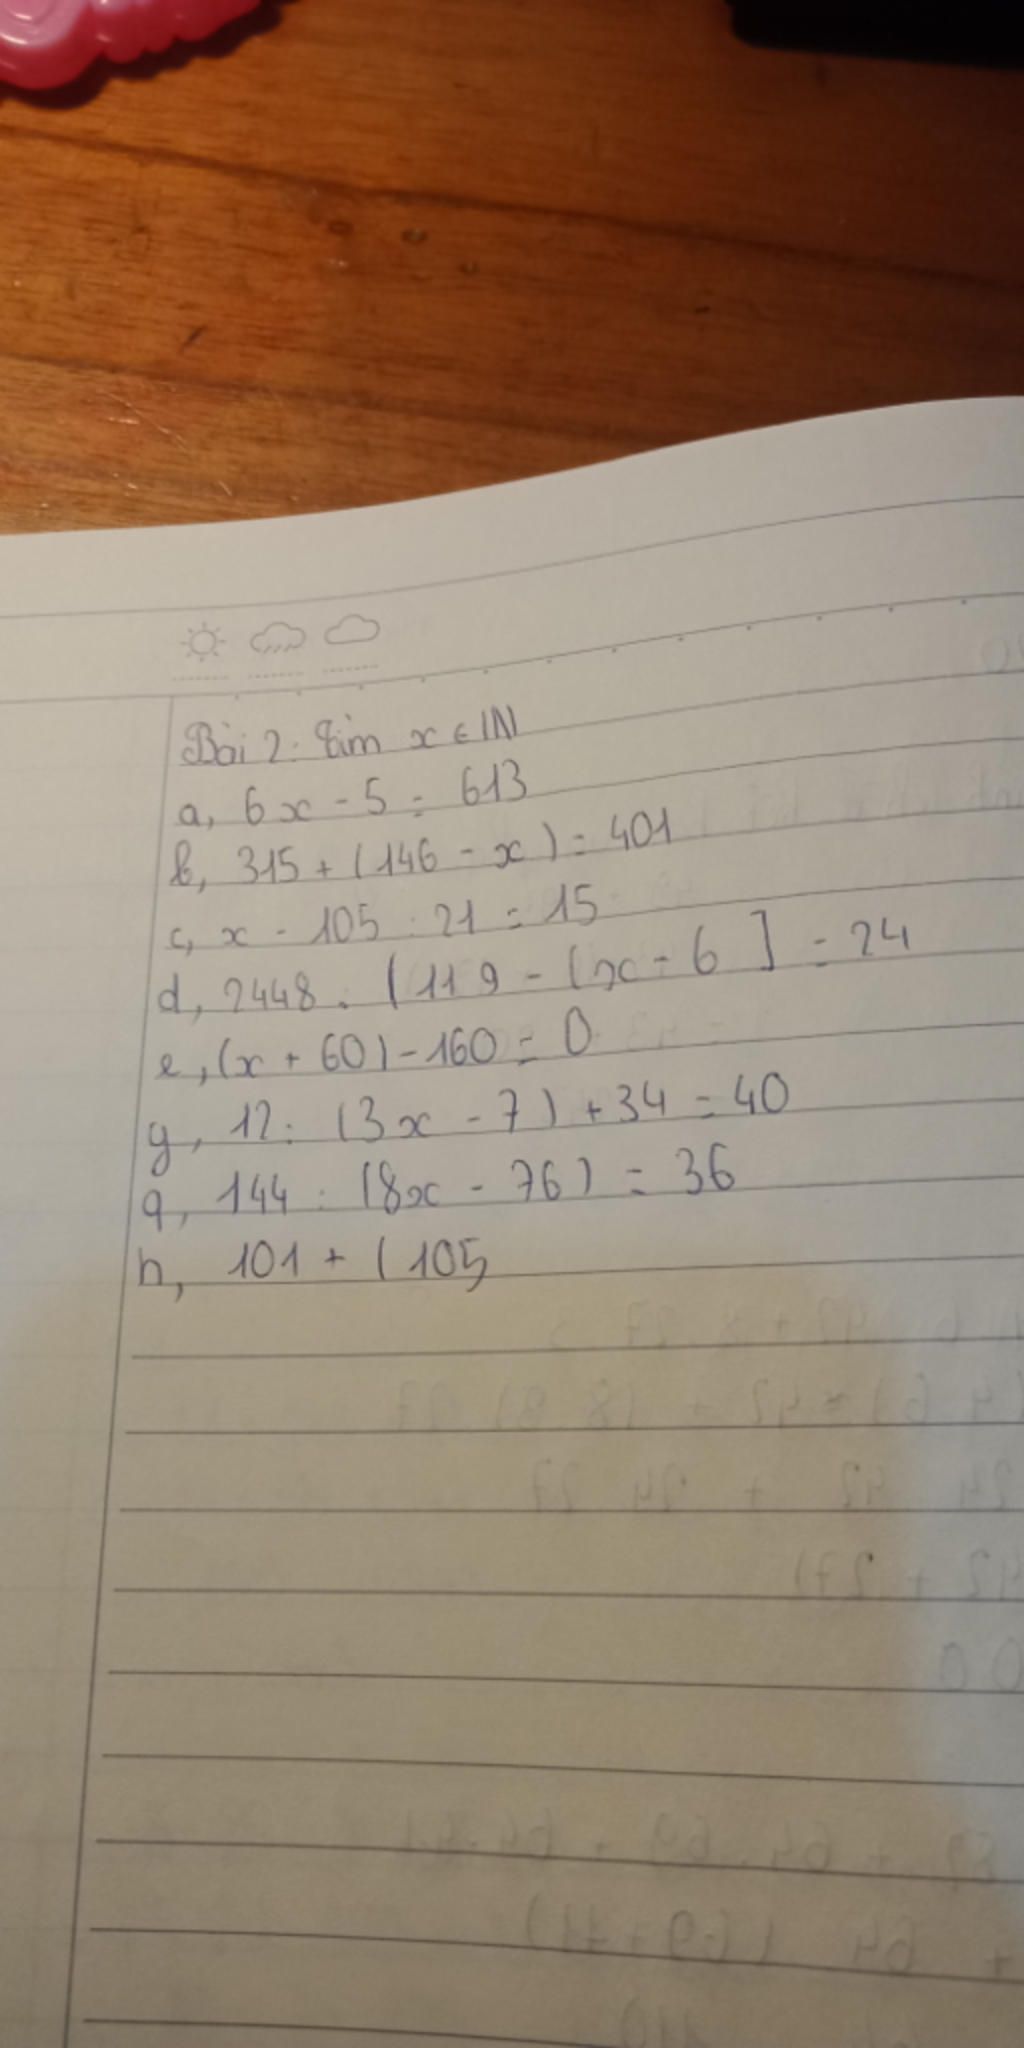 Bài 2: Tìm x ∈ IN
a, 6x - 5 = 613
b, 315 + (146 - x) = 401
c, x - 105 : 21 = 15
d, 2448 : [119 - (x - 6] = 24
e, (x + 60) - 160 = 0
y, 12 : (3x - 7) + 34 = 40
q, 144 : (8x - 76) = 36
h, 101 + (105